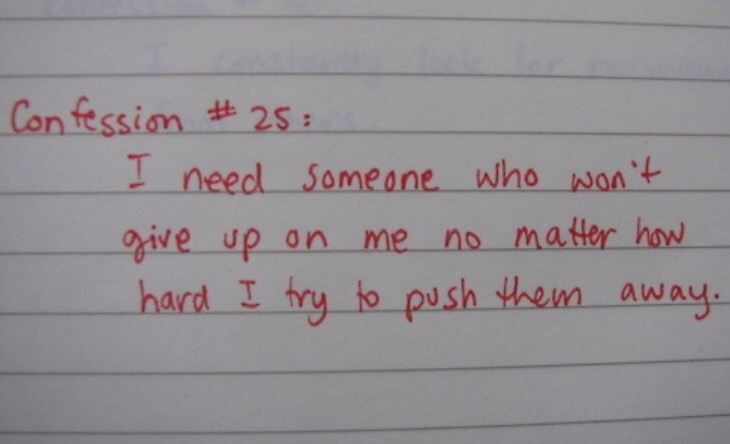 I constantly look for
Confession # 25:
I need someone who won't
give up on me no matter how
hard I try to push them away.